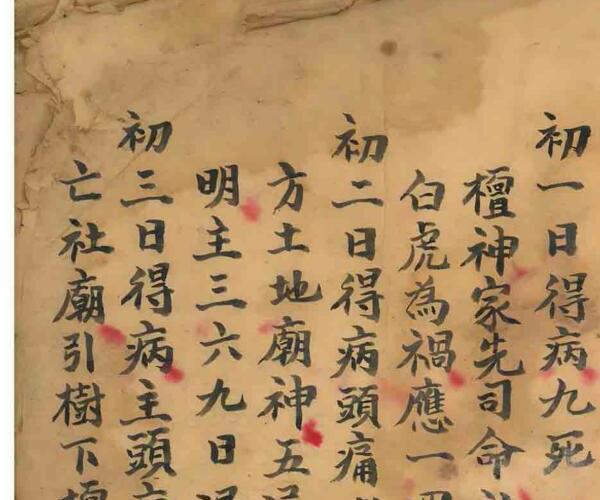 初一日得病九死
檀神家先司命
白虎為禍應一
初二日得病頭痛
方土地廟神五
明主三六九日
初三日得病主頭
亡社廟引樹下